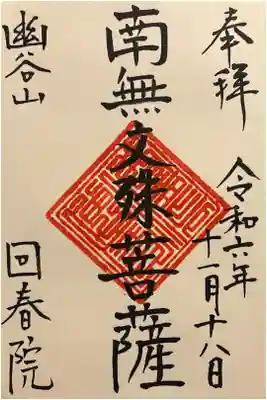 奉拝
令和六年
十一月十八日
南無文殊菩薩
幽谷山
回春院